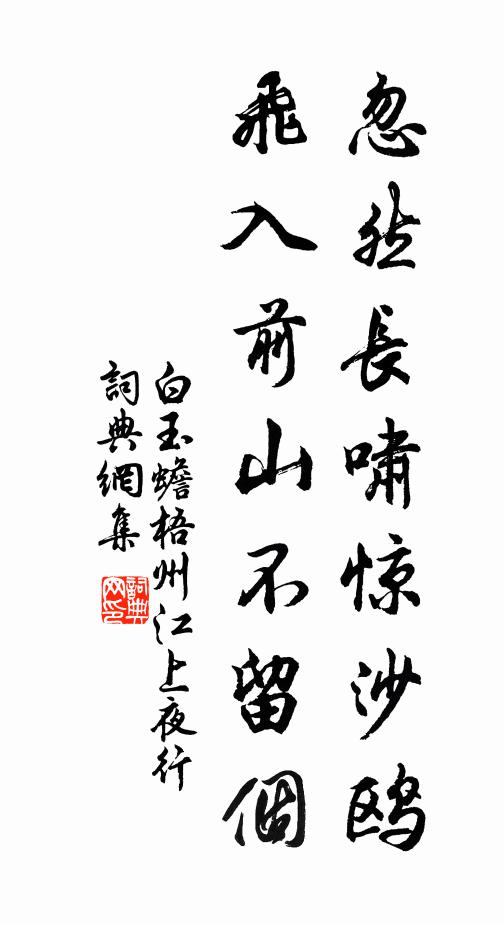 忽然長嘯惊沙鸥
飛入前山不留個
白玉蟾梧州江上夜行
詞典網集
詞典网印